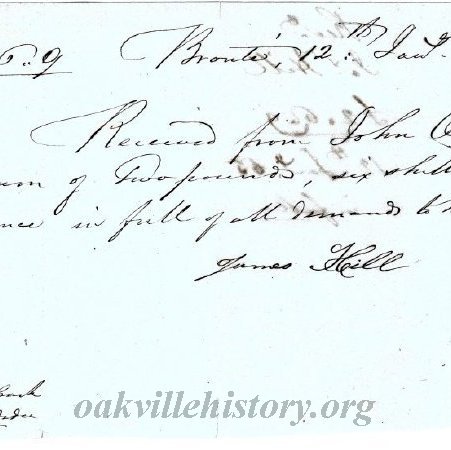 6.. 9 Bronte, 12th Jany
Received from John
Two pounds, six shill
in full of all demands to
James Hill
oakvillehistory.org